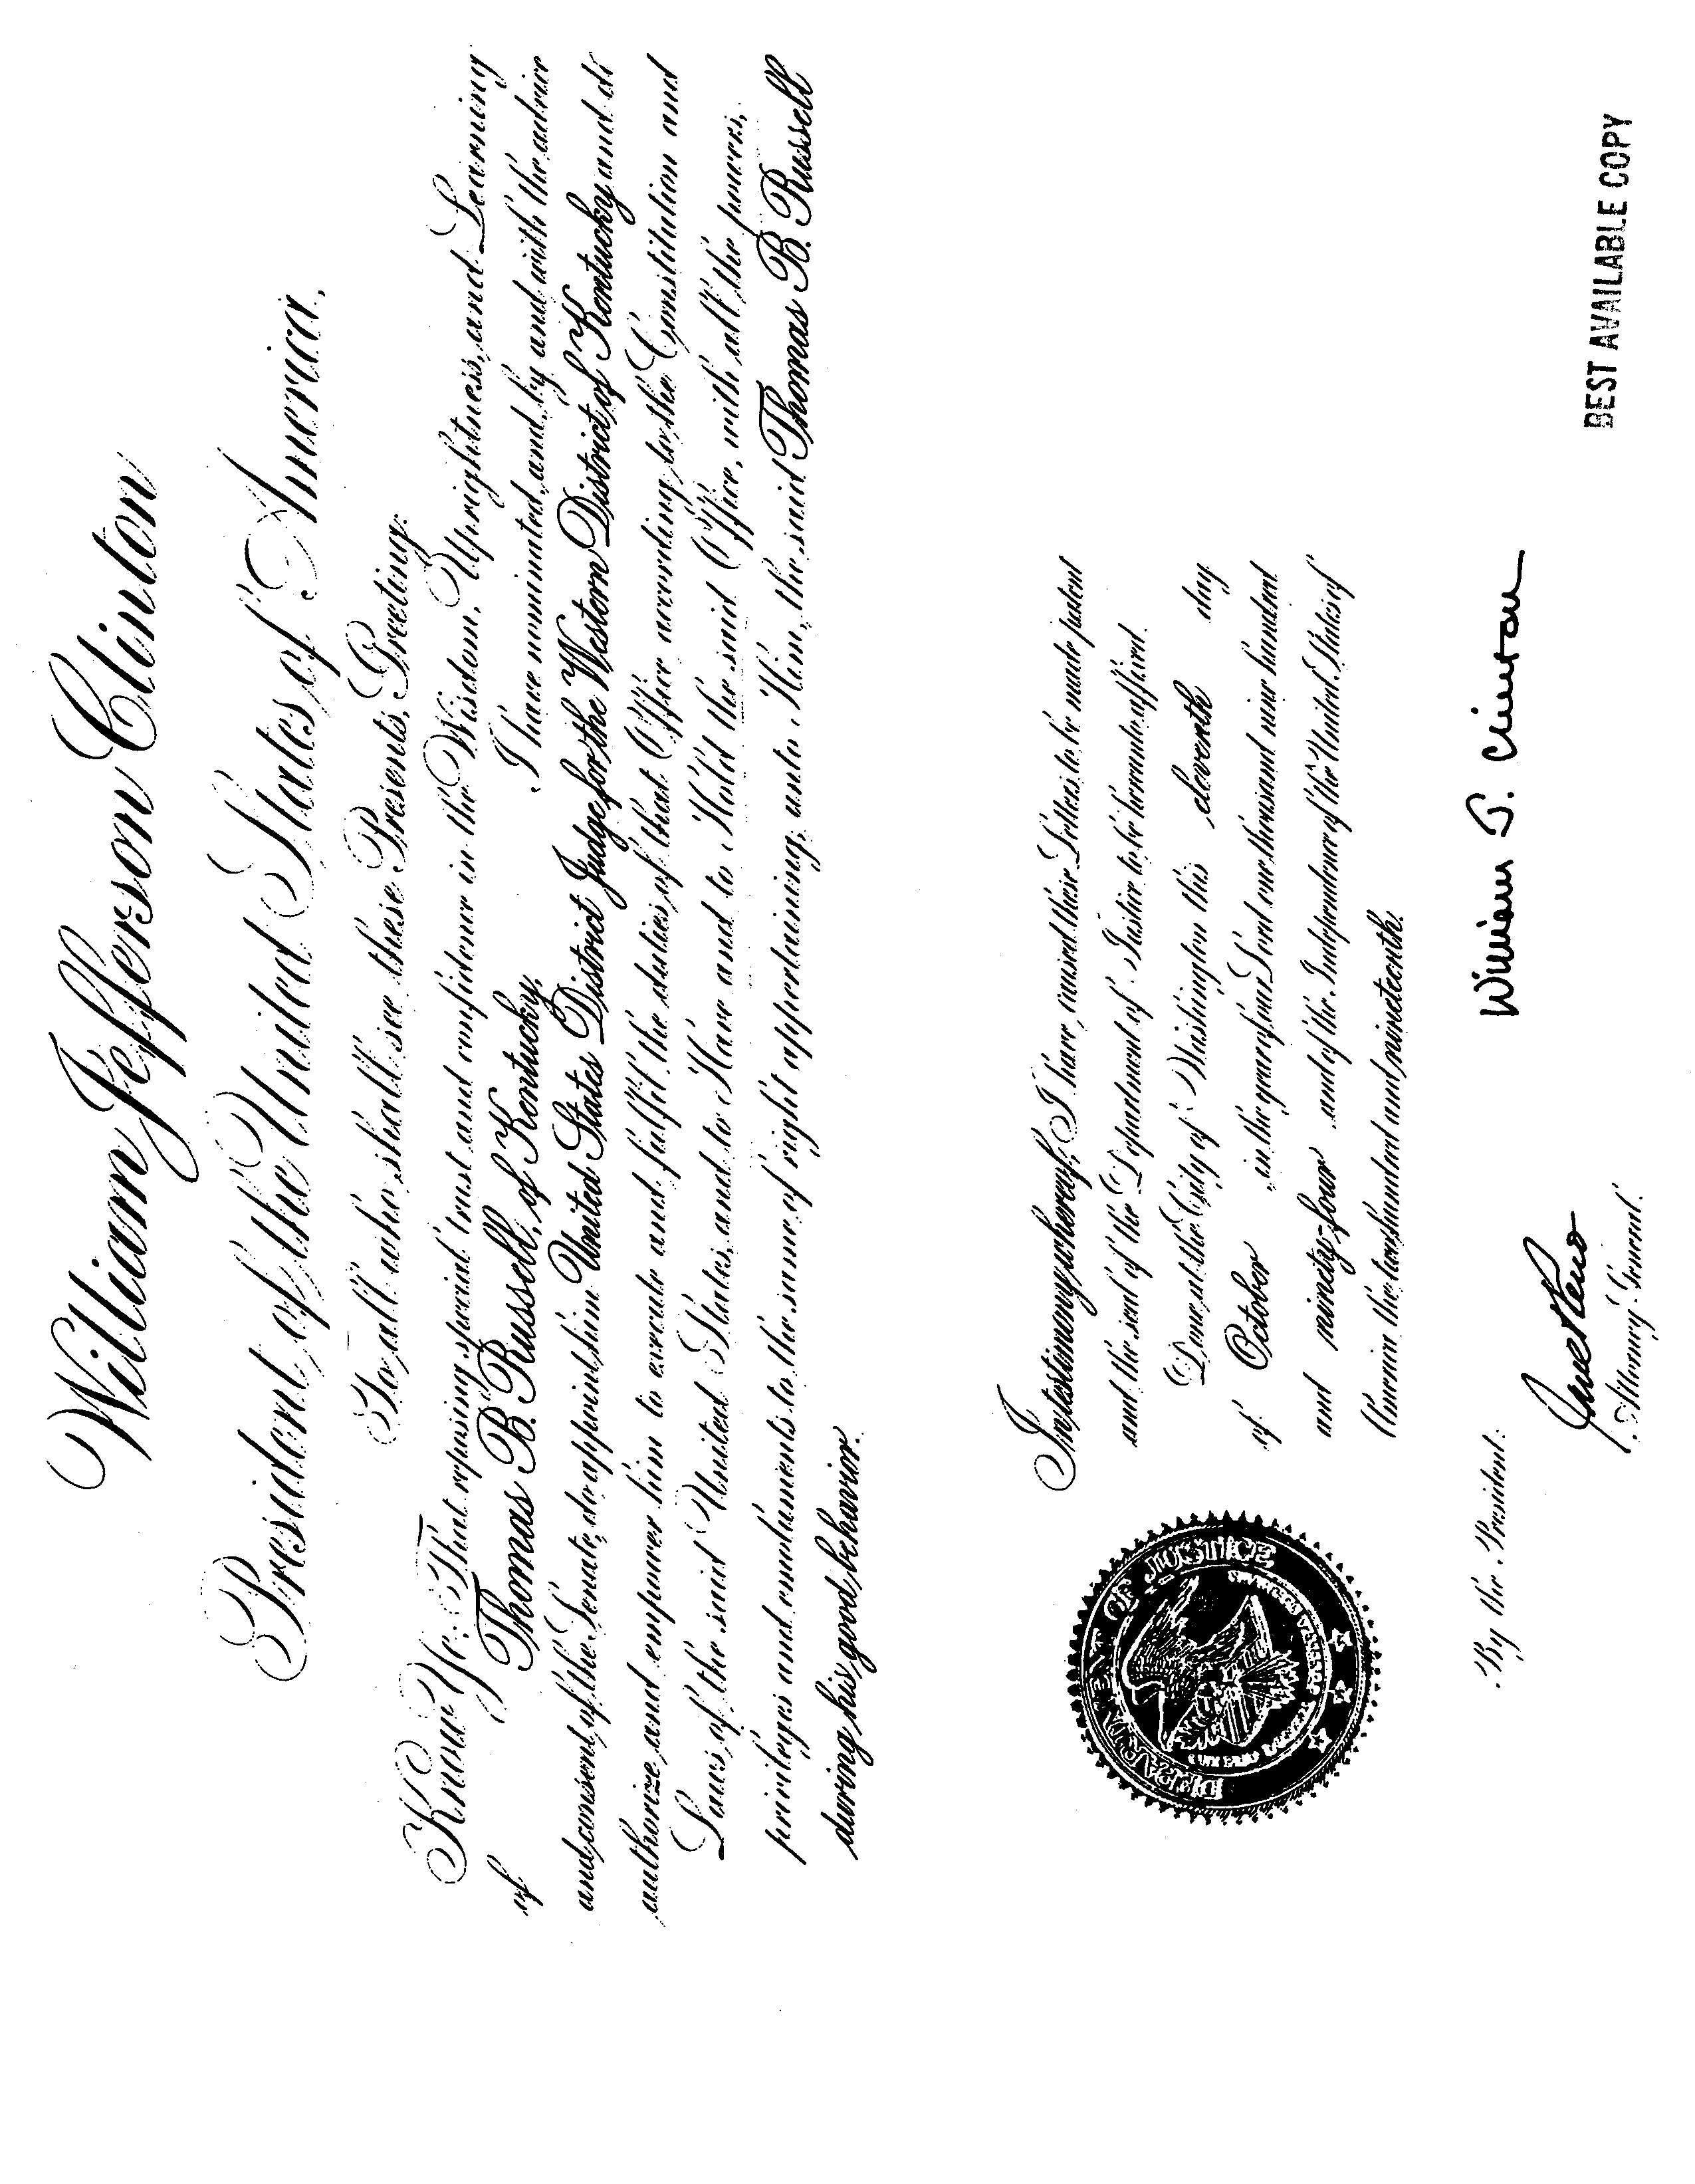 William Jefferson Clinton
President of the United States of America,
To all who shall see these Presents, Greeting:
Know Ye: That reposing special trust and confidence in the Wisdom, Uprightness, and Learning
of Thomas B. Russell, of Kentucky, I have nominated, and, by and with the advice
and consent of the Senate, do appoint him United States District Judge for the Western District of Kentucky and do
authorize and empower him to execute and fulfil the duties of that Office according to the Constitution and
Laws of the said United States, and to Have and to Hold the said Office, with all the powers,
privileges and emoluments to the same of right appertaining, unto Him, the said Thomas B. Russell
during his good behavior.
In testimony whereof, I have caused these Letters to be made patent
and the seal of the Department of Justice to be hereunto affixed.
Done at the City of Washington this eleventh day
of October in the year of our Lord one thousand nine hundred
and ninety-four and of the Independence of the United States of
America the two hundred and nineteenth.
DEPARTMENT OF JUSTICE
QUI PRO DOMINA JUSTITIA SEQUITUR
William J. Clinton
By the President:
Janet Reno
Attorney General.
BEST AVAILABLE COPY